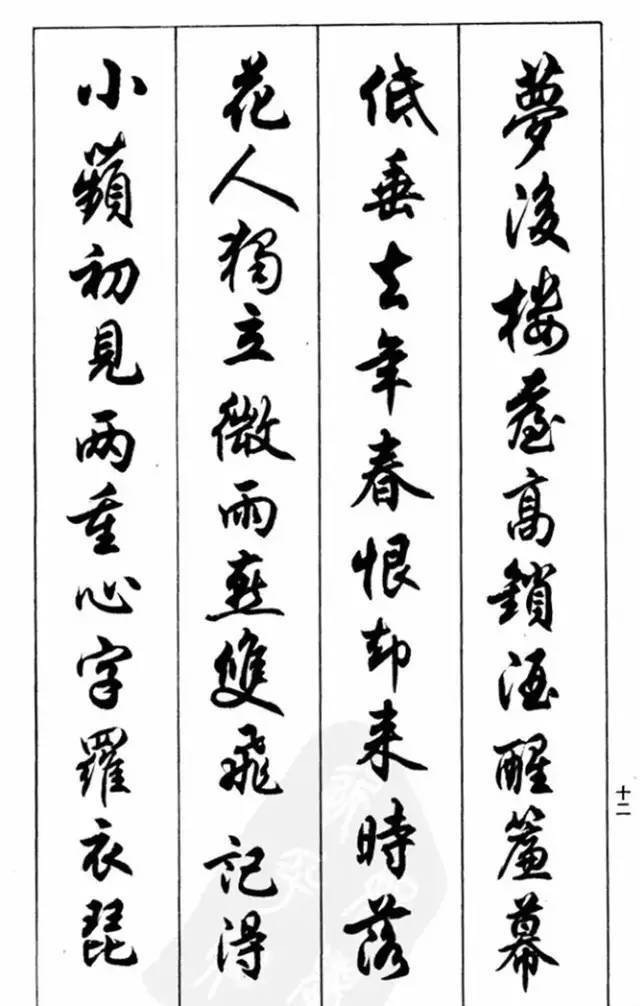 夢後樓臺高鎖酒醒簾幕
低垂去年春恨却来時落
花人獨立微雨燕雙飛記得
小蘋初見两重心字羅衣琵
十二